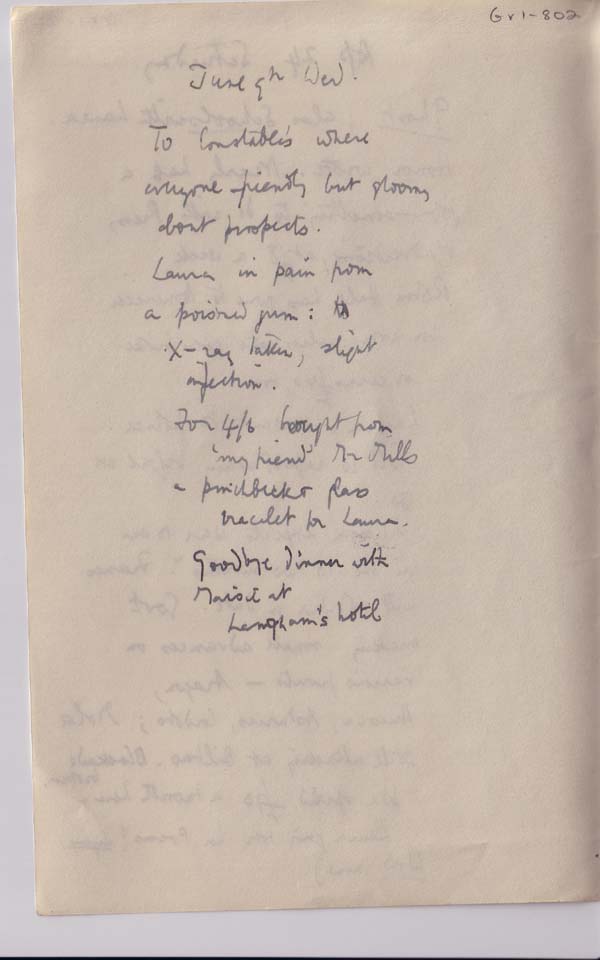 Gr1-802
June 9th Wed.
To Constable's where
everyone friendly but gloomy
about prospects.
Laura in pain from
a poisoned gum:
X-ray taken, slight
infection.
For 4/6 bought from
'my friend' Mr Mills
a pinchbeck & glass
bracelet for Laura.
Goodbye dinner with
Maisie at
Langham's hotel